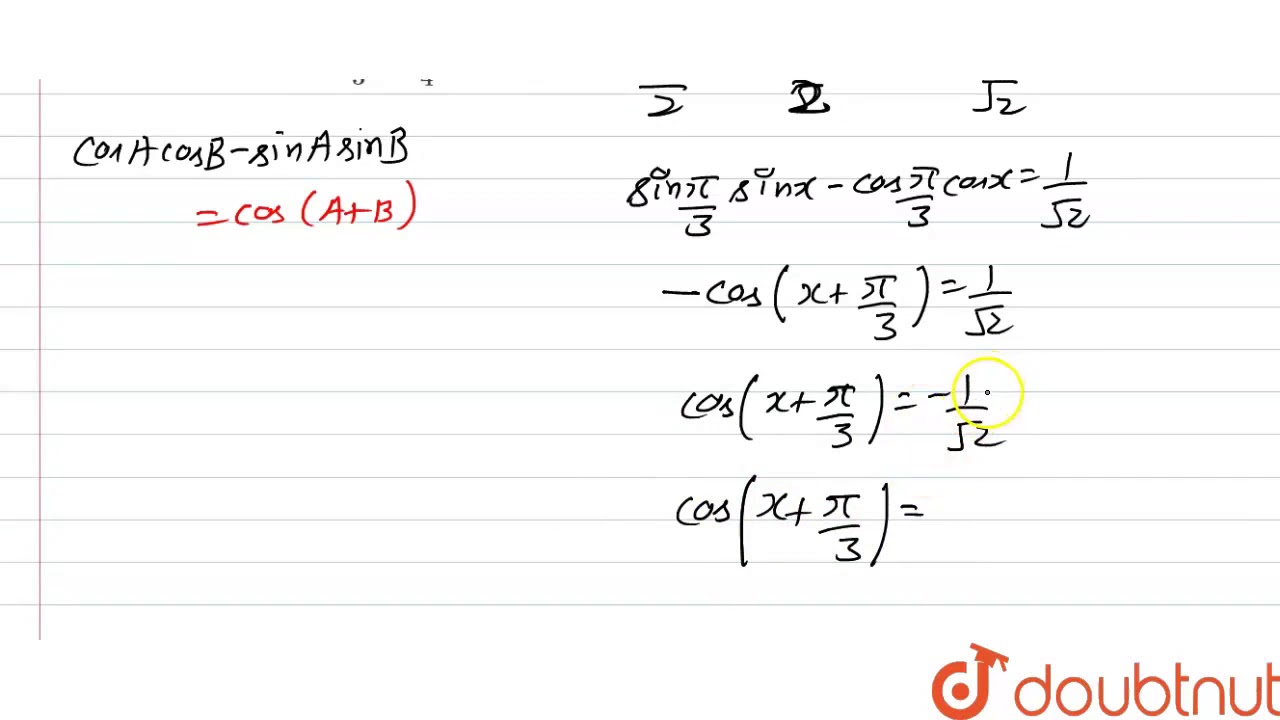 cosAcosB-sinAsinB
=cos(A+B)
2 2 √2
sin π/3 sinx - cos π/3 cosx = 1/√2
-cos(x+π/3) = 1/√2
cos(x+π/3) = -1/√2
cos(x+π/3) =
doubtnut